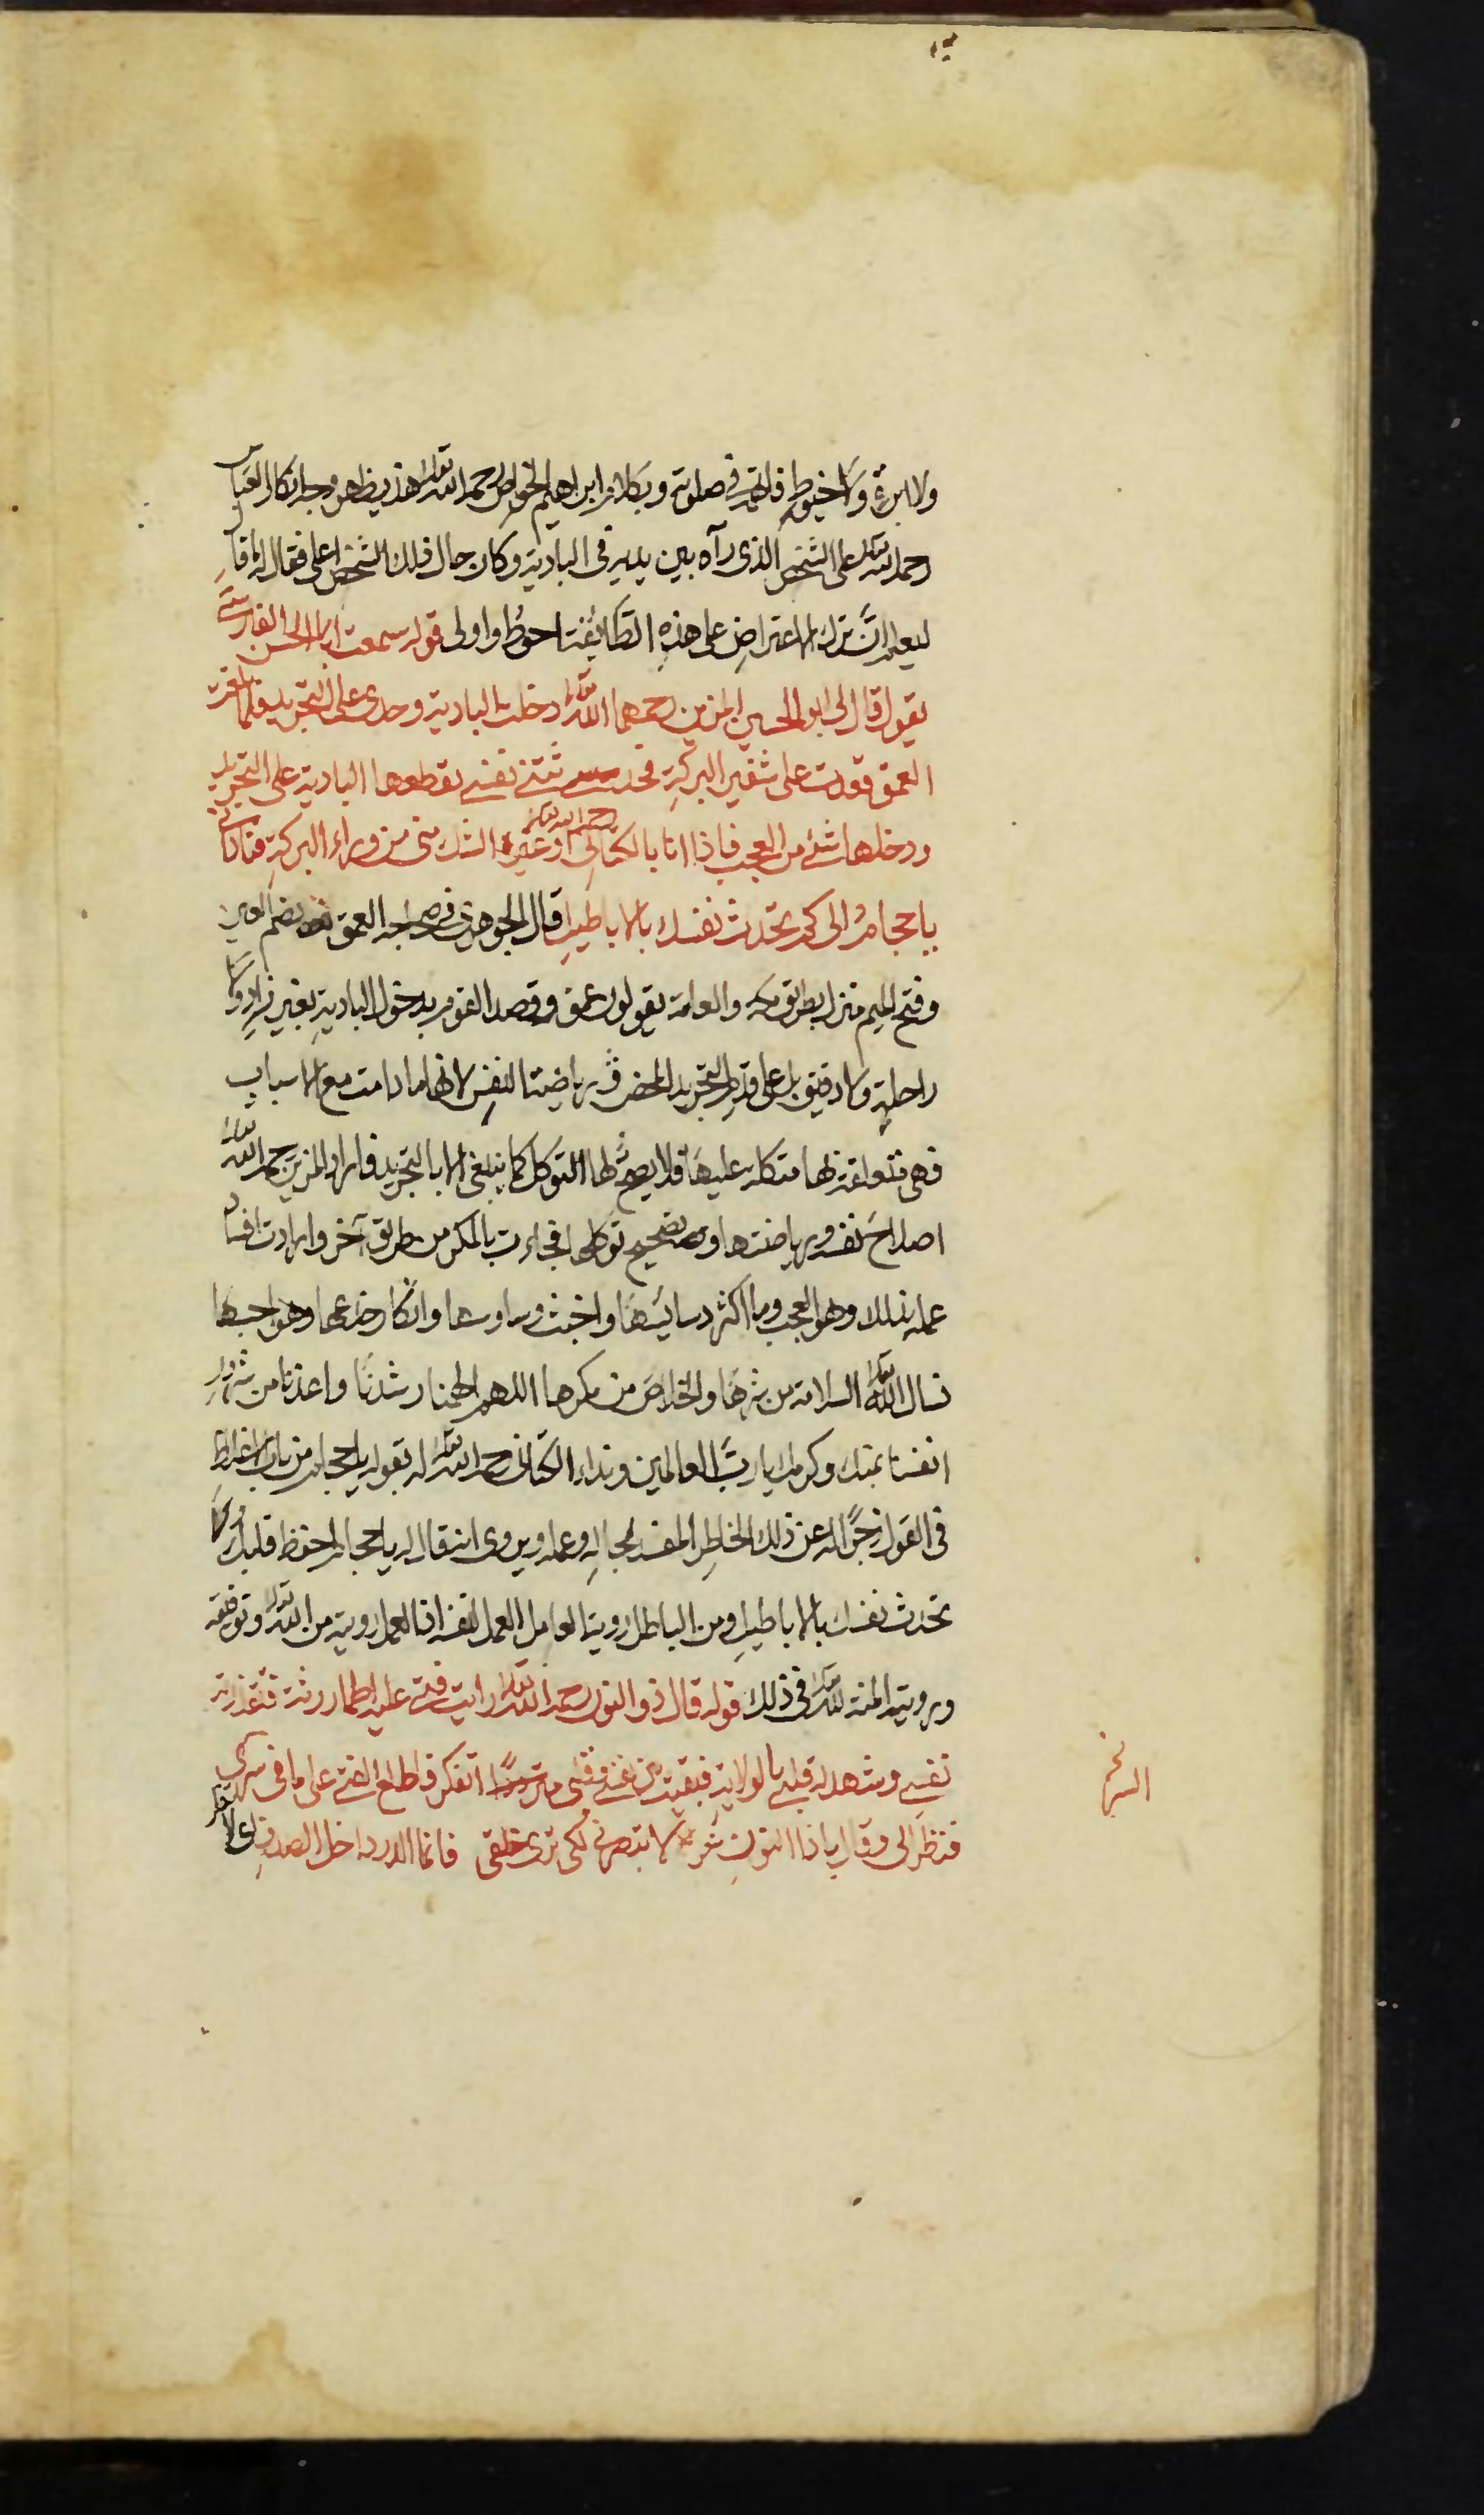 ولا ابرة ولا خيوط فاتهمه في صلوته وبكلام ابراهيم الخواص رحمه الله تعالى هذا يظهر وجه انكار العباس
رحمه الله تعالى على الشخص الذي رآه بين يديه في البادية وكان حال ذلك الشخص اعلى فقال له
ليعلم ان ترك الاعتراض على هذه الطائفة احوط واولى قوله سمعت ابا الحسن الفارسي
يقول قال لي ابو الحسين المزين رحمهما الله تعالى دخلت البادية وحدي على التجريد فلما بلغت
العمق قعدت على شفير البركة فحدثتني نفسي بقطعها البادية على التجريد
ودخلها شئ من العجب فاذا انا بالكتاني رحمه الله تعالى او غيره الشك مني من وراء البركة فناداني
يا حجام الى كم تحدث نفسك بالاباطيل قال الجوهري في صحاحه العمق بضم العين
وفتح الميم منزل بطريق مكة والعامة يقولون عمق وقصد القوم بدخول البادية بغير زاد ولا
راحلة ولا رفيق بل على قدم التجريد المحض في رياضة النفس لانها ما دامت مع الاسباب
فهي متعلقة بها متكلة عليها فلا يصح لها التوكل كما ينبغي الا بالتجريد فاراد المزين رحمه الله تعالى
اصلاح نفسه ورياضتها وتصحيح توكلها فجاءت بالمكر من طريق آخر وارادت افساد
عمله بذلك وهو العجب وما اكثر دسائسها واخبث وساوسها وانكا خدعها وهو احبها
نسال الله تعالى السلامة من شرها والخلاص من مكرها اللهم الهمنا رشدنا واعذنا من شرور
انفسنا بمنك وكرمك يا رب العالمين ونداء الكتاني رحمه الله تعالى له بقوله يا حجام من باب الاغلاظ
في القول زجرا له عن ذلك الخاطر المفسد لحاله وعمله ويروى انه قال له يا حجام احفظ قلبك ولا
تحدث نفسك بالاباطيل ومن الباطل رؤية العامل العمل لنفسه انما العمل رؤيته من الله تعالى وتوفيقه
ورؤيته المنة لله تعالى في ذلك قوله قال ذو النون رحمه الله تعالى رايت فتى عليه اطمار رثة فتقذرته
نفسي وشهد له قلبي بالولاية فبقيت بين نفسي وقلبي اتفكر فاطلع الفتى على ما في سري
فنظر الي وقال يا ذا النون شعر لا تبصرني لكي ترى خلقي فانما الدر داخل الصدف اي لا